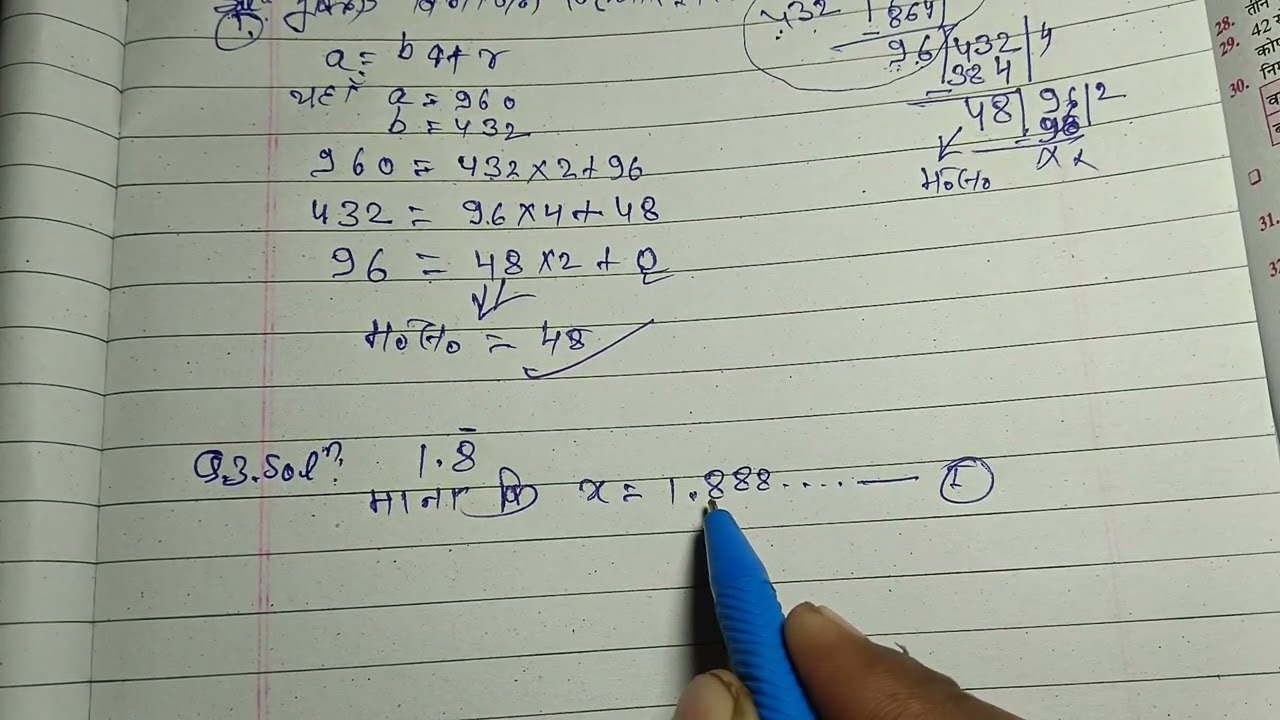 a = bq + r
यहाँ a = 960
b = 432
960 = 432 × 2 + 96
432 = 96 × 4 + 48
96 = 48 × 2 + 0
म०स० = 48
432 | 864
96 | 432 | 4
384
48 | 96 | 2
96
× ×
म०स०
Q.3. Solⁿ. 1.8̅
माना कि x = 1.888.... — (I)
28. तीन
29. 42
30.
31.